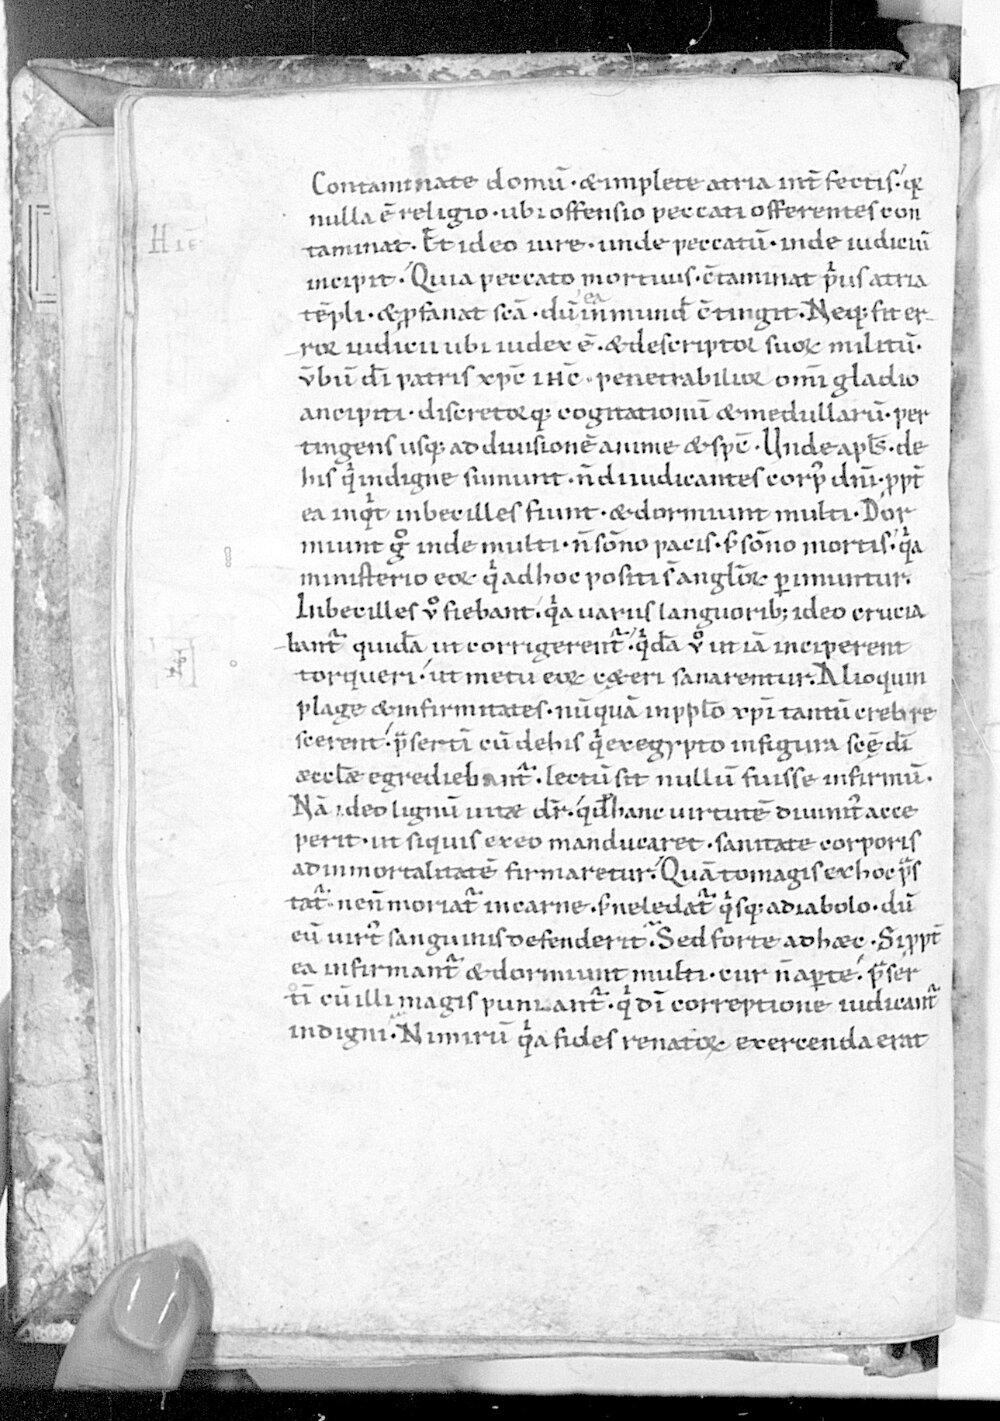 Contaminate domū · & implete atria int̄fectis · q̨
nulla ē religio · ubi offensio peccati offerentes con
taminat · Et ideo iure · unde peccatū · inde iudiciū
incipit · Quia peccato mortuus · c̄taminat p̄us atria
tēpli · & ꝓfanat scā · dū ea inmund̄ c̄tingit · Neq; fit er
ror iudicii ubi iudex ē · & descriptor suoꝝ militū ·
v̄bū dī patris xp̄c ihc̄ · penetrabilior om̄i gladio
ancipiti · discretorq; cogitationū & medullarū · per
tingens usq; ad divisionē anime & sp̄c · Unde apl̄s · de
his q̄ indigne sumunt · n̄ diiudicantes corp̄ dn̄i · ꝓpt̄
ea inq̄t inbecilles fiunt · & dormiunt multi · Dor
miunt gͦ inde multi · n̄ sōno pacis · s; sōno mortis · q̄a
ministerio eoꝝ q̄ ad hoc positi s̄ angl̄oꝝ ꝑimuntur ·
Inbecilles vͦ fiebant · q̄a variis languorib; ideo crucia
bant᷑ quidā ut corrigerent᷑ · q̄dā vͦ ut iā inciperent
torqueri · ut metu eoꝝ c&eri sanarentur · Alioquin
plage & infirmitates · nūquā in ppl̄o xp̄i tantū crebre
scerent · p̄sertī cū de his q̄ ex egypto in figura scē dī
æccl̄æ egrediebant᷑ · lectū sit nullū fuisse infirmū ·
Nā ideo lignū vitæ dr̄ · qd̄ hanc virtutē divinit᷑ acce
perit · ut siquis ex eo manducaret · sanitate corporis
ad inmortalitatē firmaretur · Quātomagis ex hoc p̄s
tat᷑ · ne n̄ moriat᷑ in carne · s; ne ledat᷑ q̄sq; a diabolo · dū
eū virt᷑ sanguinis defenderit · Sed forte ad hæc · Si ꝓpt̄
ea infirmant᷑ & dormiunt multi · cur n̄ aꝑte · p̄ser
tī cū illi magis puniant᷑ · q̄ dī correptione iudicant᷑
indigni · Nimirū q̄a fides renatoꝝ exercenda erat